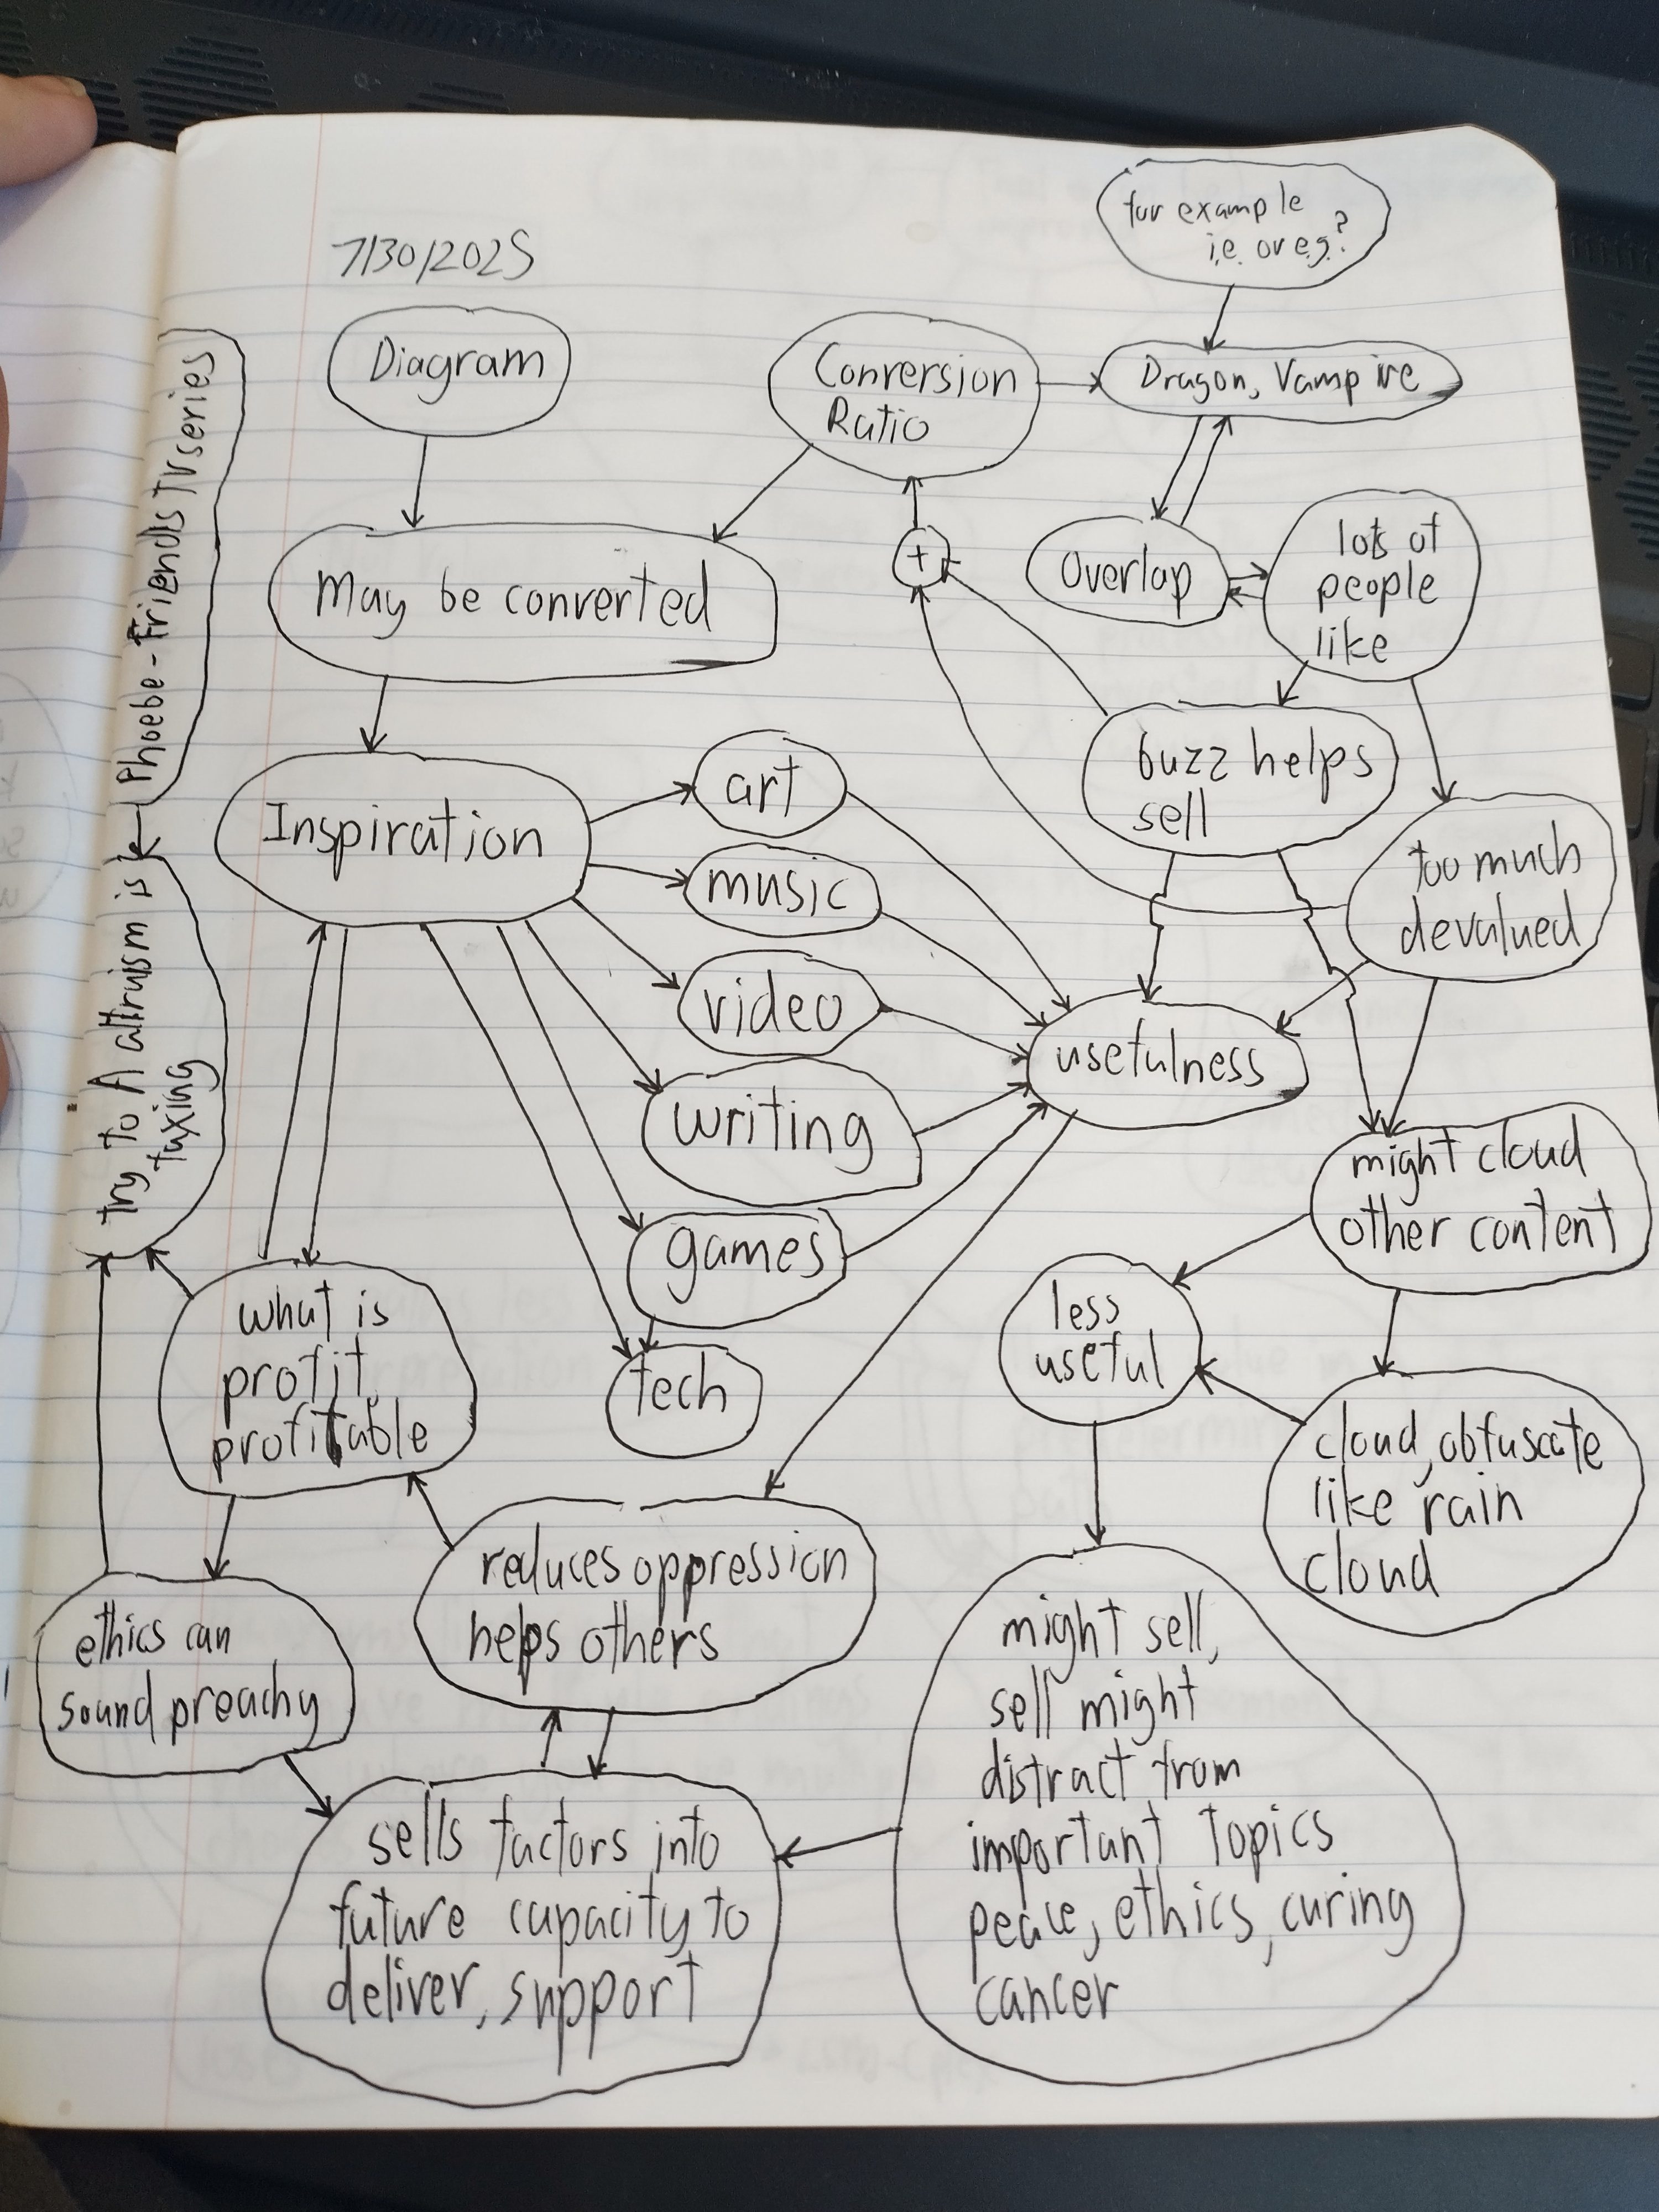 7/30/2025
for example
i.e. or e.g.?
Diagram
Conversion
Ratio
Dragon, Vampire
May be converted
+
Overlap
lots of
people
like
Phoebe - Friends TV series
Inspiration
art
music
video
writing
games
tech
buzz helps
sell
too much
devalued
usefulness
might cloud
other content
try to A altruism is
taxing
what is
profit,
profitable
less
useful
cloud, obfuscate
like rain
cloud
ethics can
sound preachy
reduces oppression
helps others
might sell,
sell might
distract from
important topics
peace, ethics, curing
cancer
sells factors into
future capacity to
deliver, support